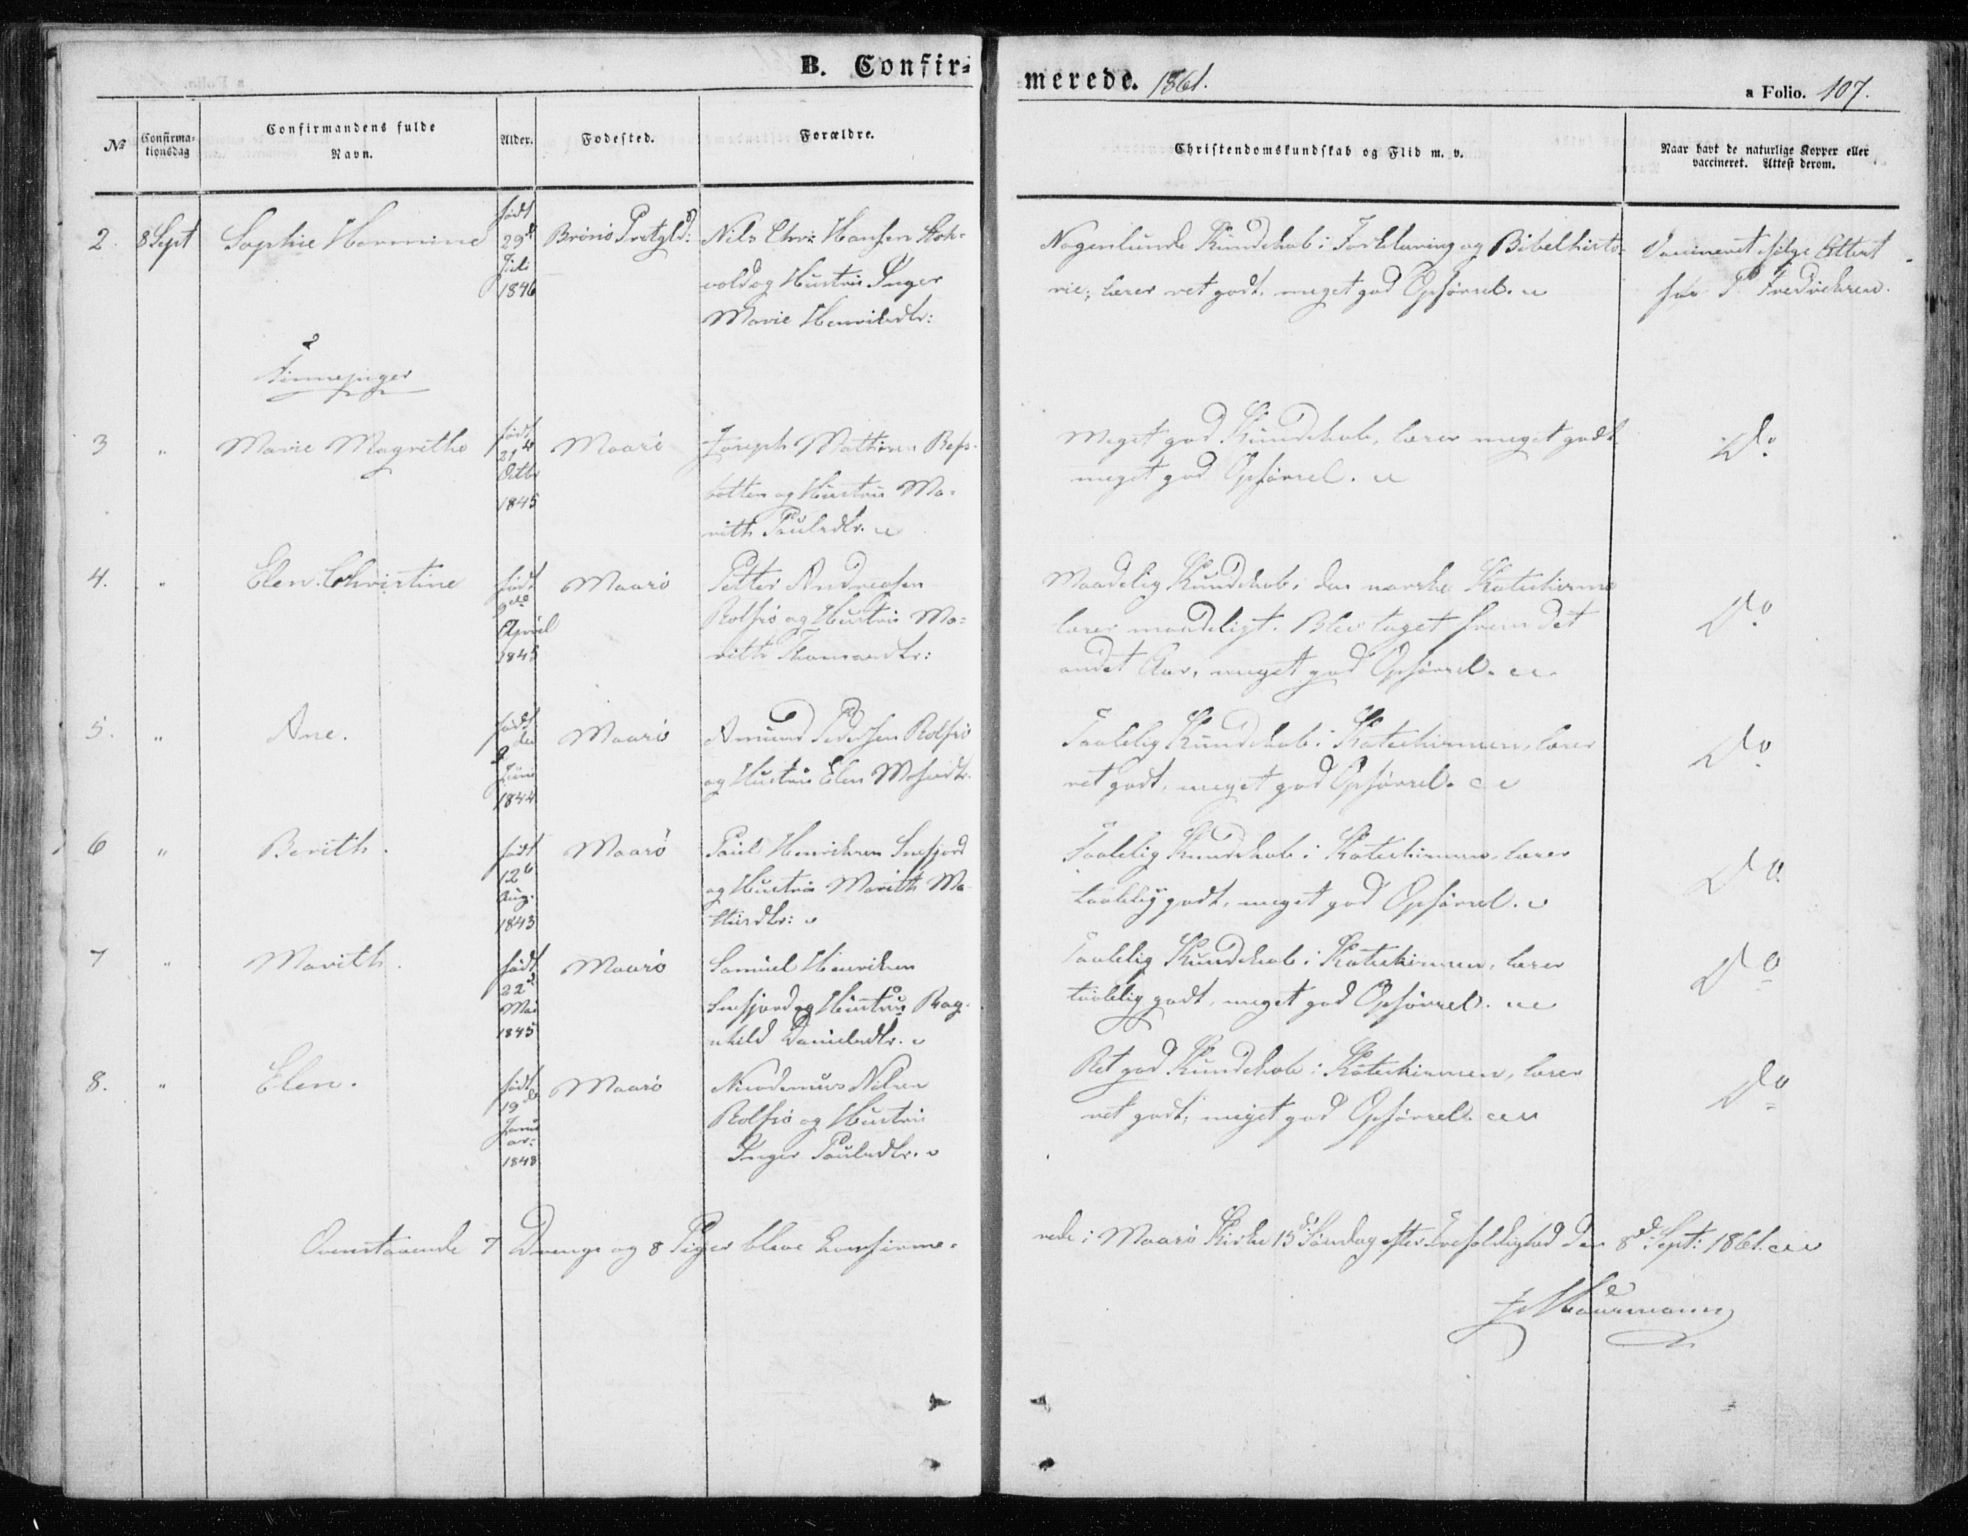 B. Confir=
merede. 1861.
a Folio. 107.
№
Confirma-
tionsdag
Confirmandens fulde
Navn.
Alder.
Fødested.
Forældre.
Christendomskundskab og Flid m. v.
Naar havt de naturlige Kopper eller
vaccineret. Attest derom.
2.
8 Sept
Sophie Hermine
født
29d
Juli
1846
Brönö
Nils Chr: Hansen
vold og Hustru Inger
Marie Henriksdtr:
Nogenlunde Kundskab i Forklaring og Bibelhisto-
rie; læser ret godt, meget god Opførsel.
Vaccineret ifølge Attest
fra P Fredriksen.
2
Finnepiger
3
"
Marie Magrethe
født
21d
Octbr
1845
Maasö
Joseph Mathisen
botten og Hustru Ma-
rith Paulsdtr.
Meget god Kundskab, læser meget godt
meget god Opførsel.
Do
4.
"
Elen Christine
født
9de
April
1845
Maasö
Petter Andreasen
Rolfsö og Hustru Ma-
rith Thomasdtr:
Maadelig Kundskab i den norske Katechisme
læser maadeligt. Blev taget frem det
andet Aar, meget god Opførsel.
Do
5.
"
Ane.
født
Juni
1844
Maasö
Amund Pedersen Rolfsö
og Hustru Elen
Taalelig Kundskab i Katechismen, læser
ret godt, meget god Opførsel.
Do
6
"
Berith.
født
12d
Aug.
1843
Maasö
Paul Henriksen Snefjord
og Hustru Marith Ma-
Taalelig Kundskab i Katechismen, læser
taalelig godt, meget god Opførsel.
Do
7
"
Marith.
født
22d
Mai
1845
Maasö
Samuel Henriksen
Snefjord og Hustru Rag-
nhild Danielsdtr.
Taalelig Kundskab i Katechismen, læser
taalelig godt, meget god Opførsel.
Do
8.
"
Elen.
født
19de
Janu
ar:
1848
Maasö
Nicodemus Nilsen
Rolfsö og Hustru
Inger Paulsdtr.
Ret god Kundskab i Katechismen, læser
ret godt, meget god Opførsel.
Do
Ovenstaaende 7 Drenge og 8 Piger bleve Confirme-
rede i Maasö Kirke 15d Søndag efter Trefoldighed den 8d Sept: 1861.